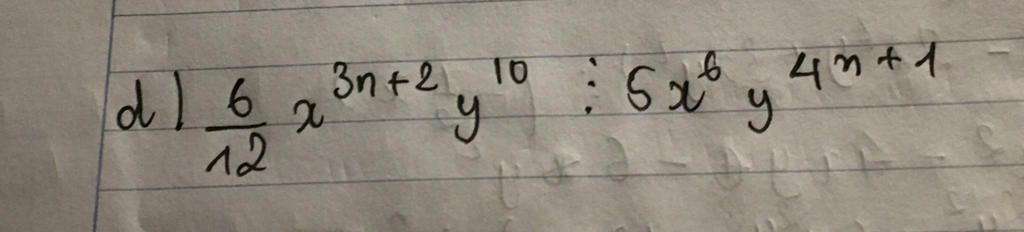 d) \frac{6}{12} x^{3n+2} y^{10} ⋮ 5x^{6} y^{4n+1}